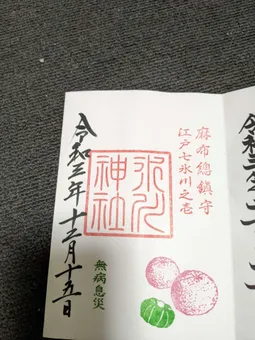 麻布總鎮守
江戸七氷川之壱
氷川
神社
無病息災
令和三年十二月十五日